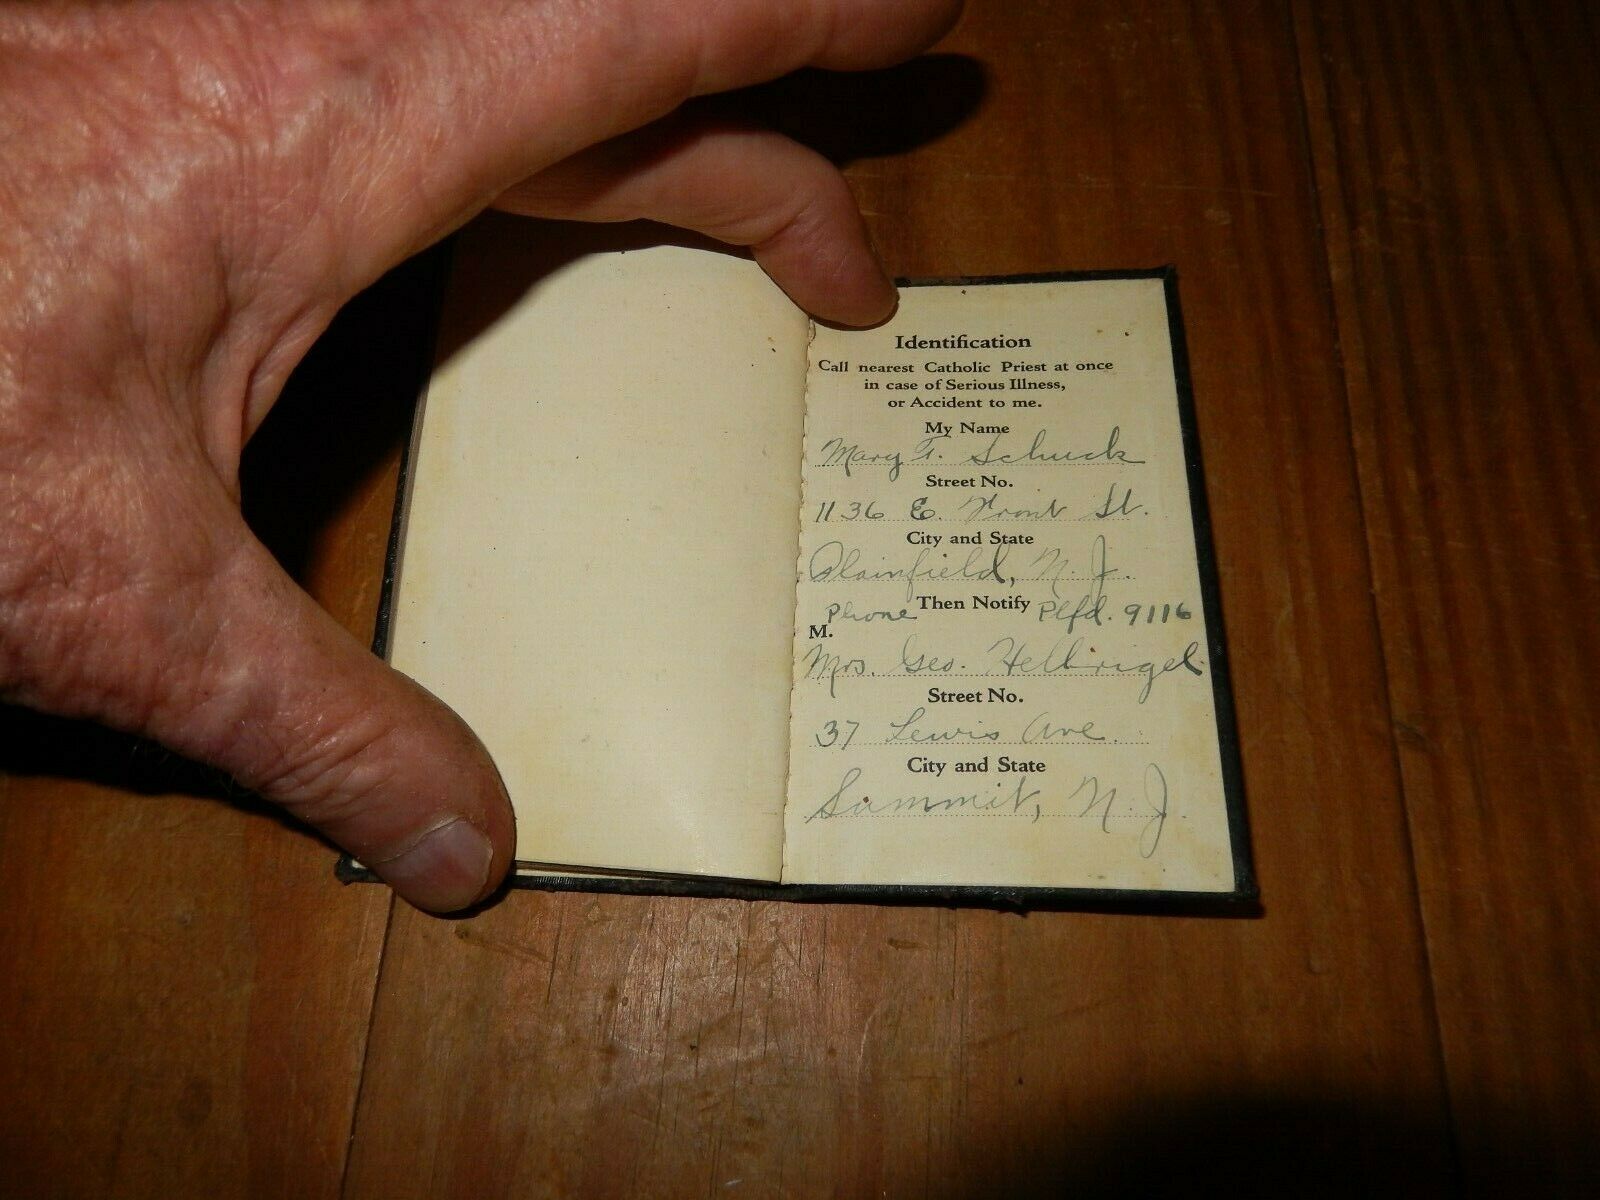 Identification
Call nearest Catholic Priest at once
in case of Serious Illness,
or Accident to me.
My Name
Mary T. Schuck
Street No.
1136 E. Front St.
City and State
Plainfield, N. J.
Then Notify
Phone Plfd. 9116
M.
Mrs. Geo. Hellrigel
Street No.
37 Lewis Ave.
City and State
Summit, N. J.